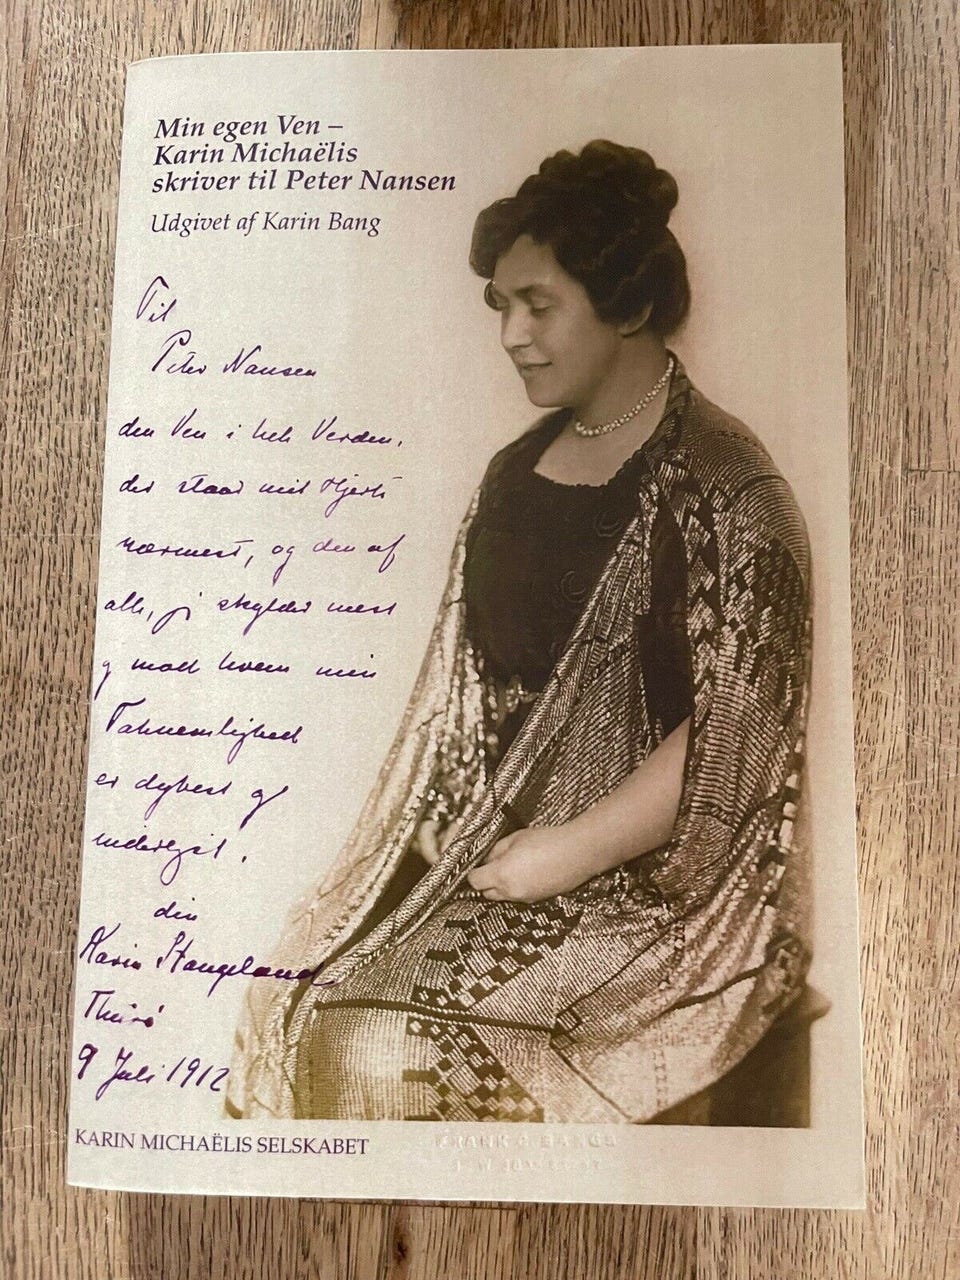 Min egen Ven –
Karin Michaëlis
skriver til Peter Nansen
Udgivet af Karin Bang
Til
Peter Nansen
den Ven i hele Verden,
der staar mit Hjerte
nærmest, og den af
alle, jeg skylder mest
og mod hvem min
Taknemlighed
er dybest og
inderligst.
din
Karin Stangeland
Thurø
9 Juli 1912
KARIN MICHAËLIS SELSKABET